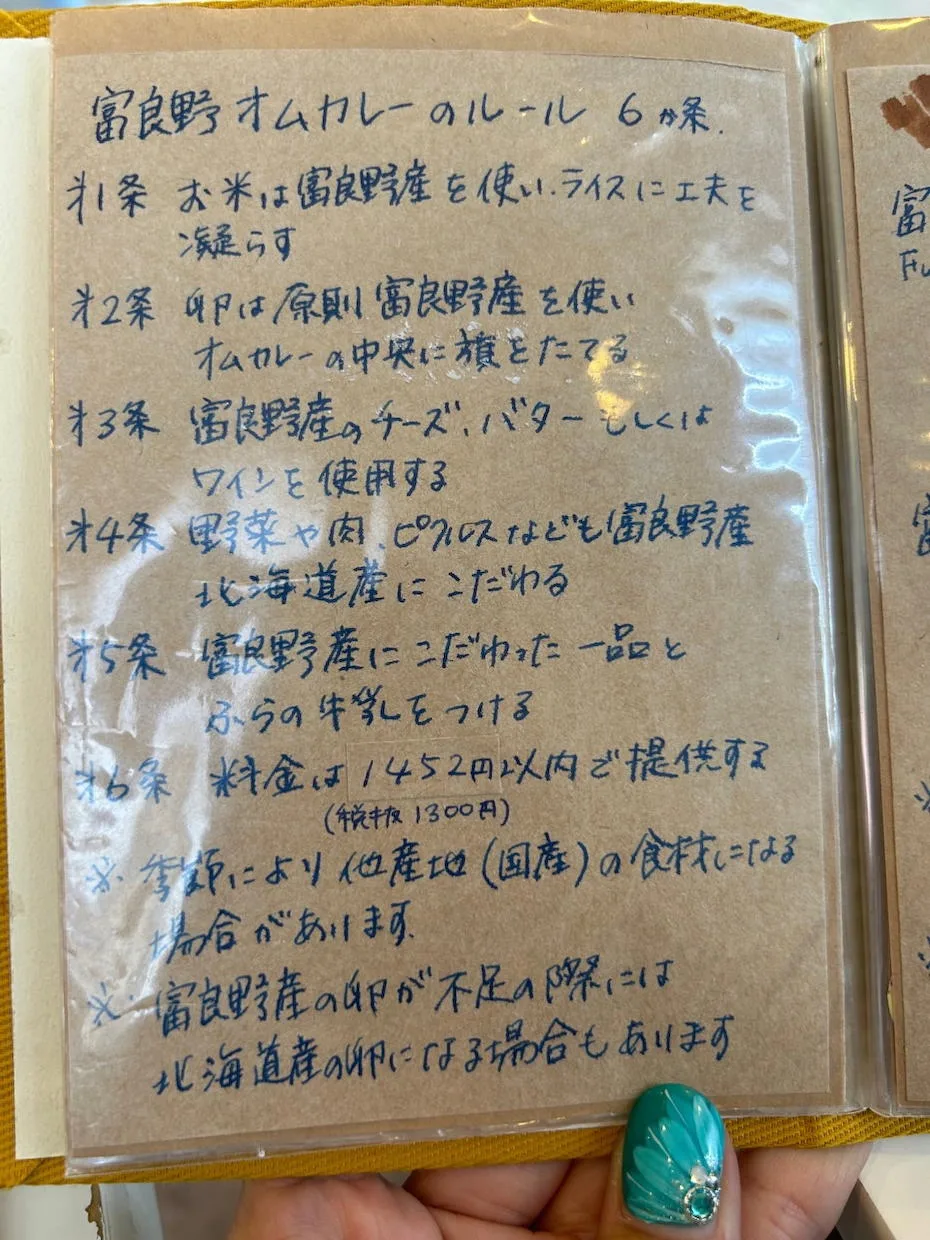 富良野オムカレーのルール 6か条.
才1条 お米は富良野産を使い.ライスに工夫を
凝らす
才2条 卵は原則富良野産を使い
オムカレーの中央に旗をたてる
才3条 富良野産のチーズ、バターもしくは
ワインを使用する
才4条 野菜や肉、ピクルスなども富良野産
北海道産にこだわる
才5条 富良野産にこだわった一品と
ふらの牛乳をつける
才6条 料金は1452円以内で提供する
(税抜1300円)
※. 季節により他産地(国産)の食材になる
場合があります.
※. 富良野産の卵が不足の際には
北海道産の卵になる場合もあります
富
Fu
富
※
※